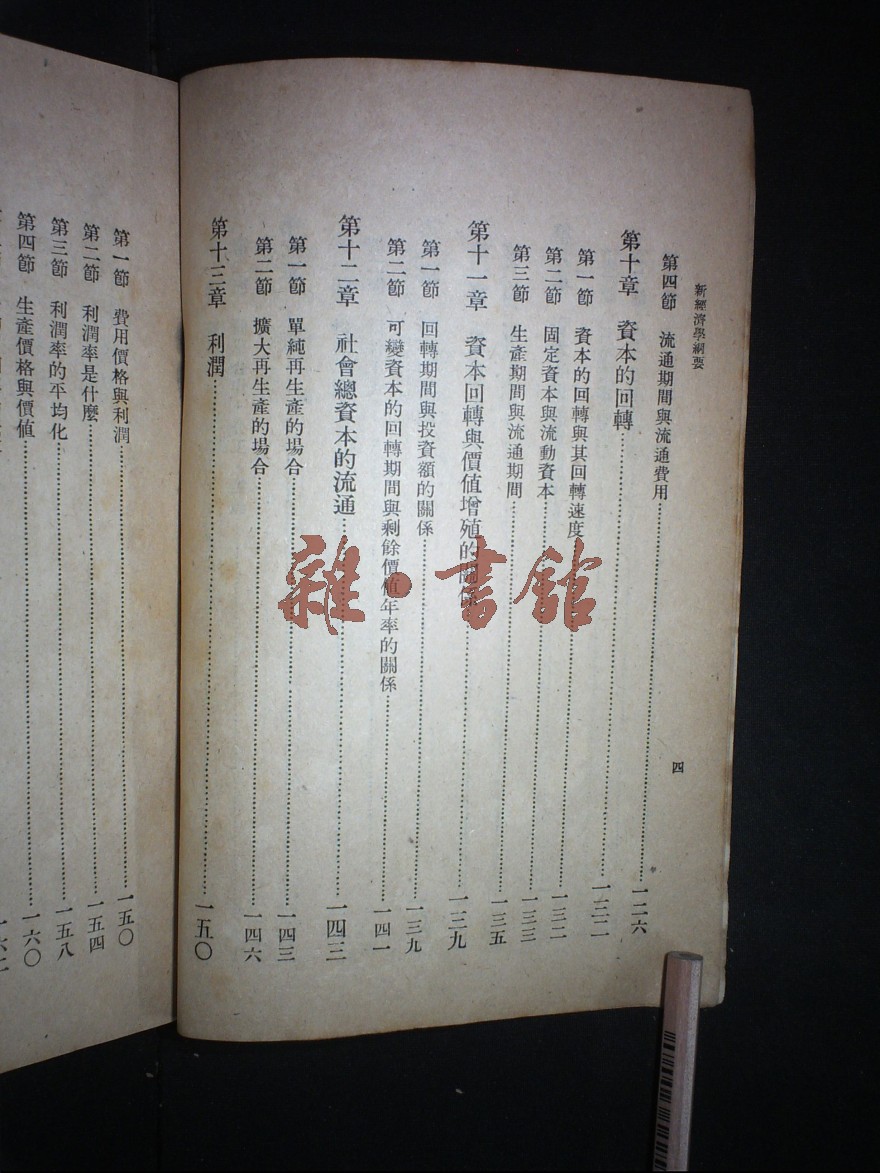 新經濟學綱要
四
第四節 流通期間與流通費用……一二六
第十章 資本的回轉……一三二
第一節 資本的回轉與其回轉速度……一三二
第二節 固定資本與流動資本……一三三
第三節 生產期間與流通期間……一三五
第十一章 資本回轉與價值增殖的關係……一三九
第一節 回轉期間與投資額的關係……一三九
第二節 可變資本的回轉期間與剩餘價值年率的關係……一四一
第十二章 社會總資本的流通……一四三
第一節 單純再生產的場合……一四三
第二節 擴大再生產的場合……一四六
第十三章 利潤……一五〇
第一節 費用價格與利潤……一五〇
第二節 利潤率是什麼……一五四
第三節 利潤率的平均化……一五八
第四節 生產價格與價值……一六〇
雜·書館